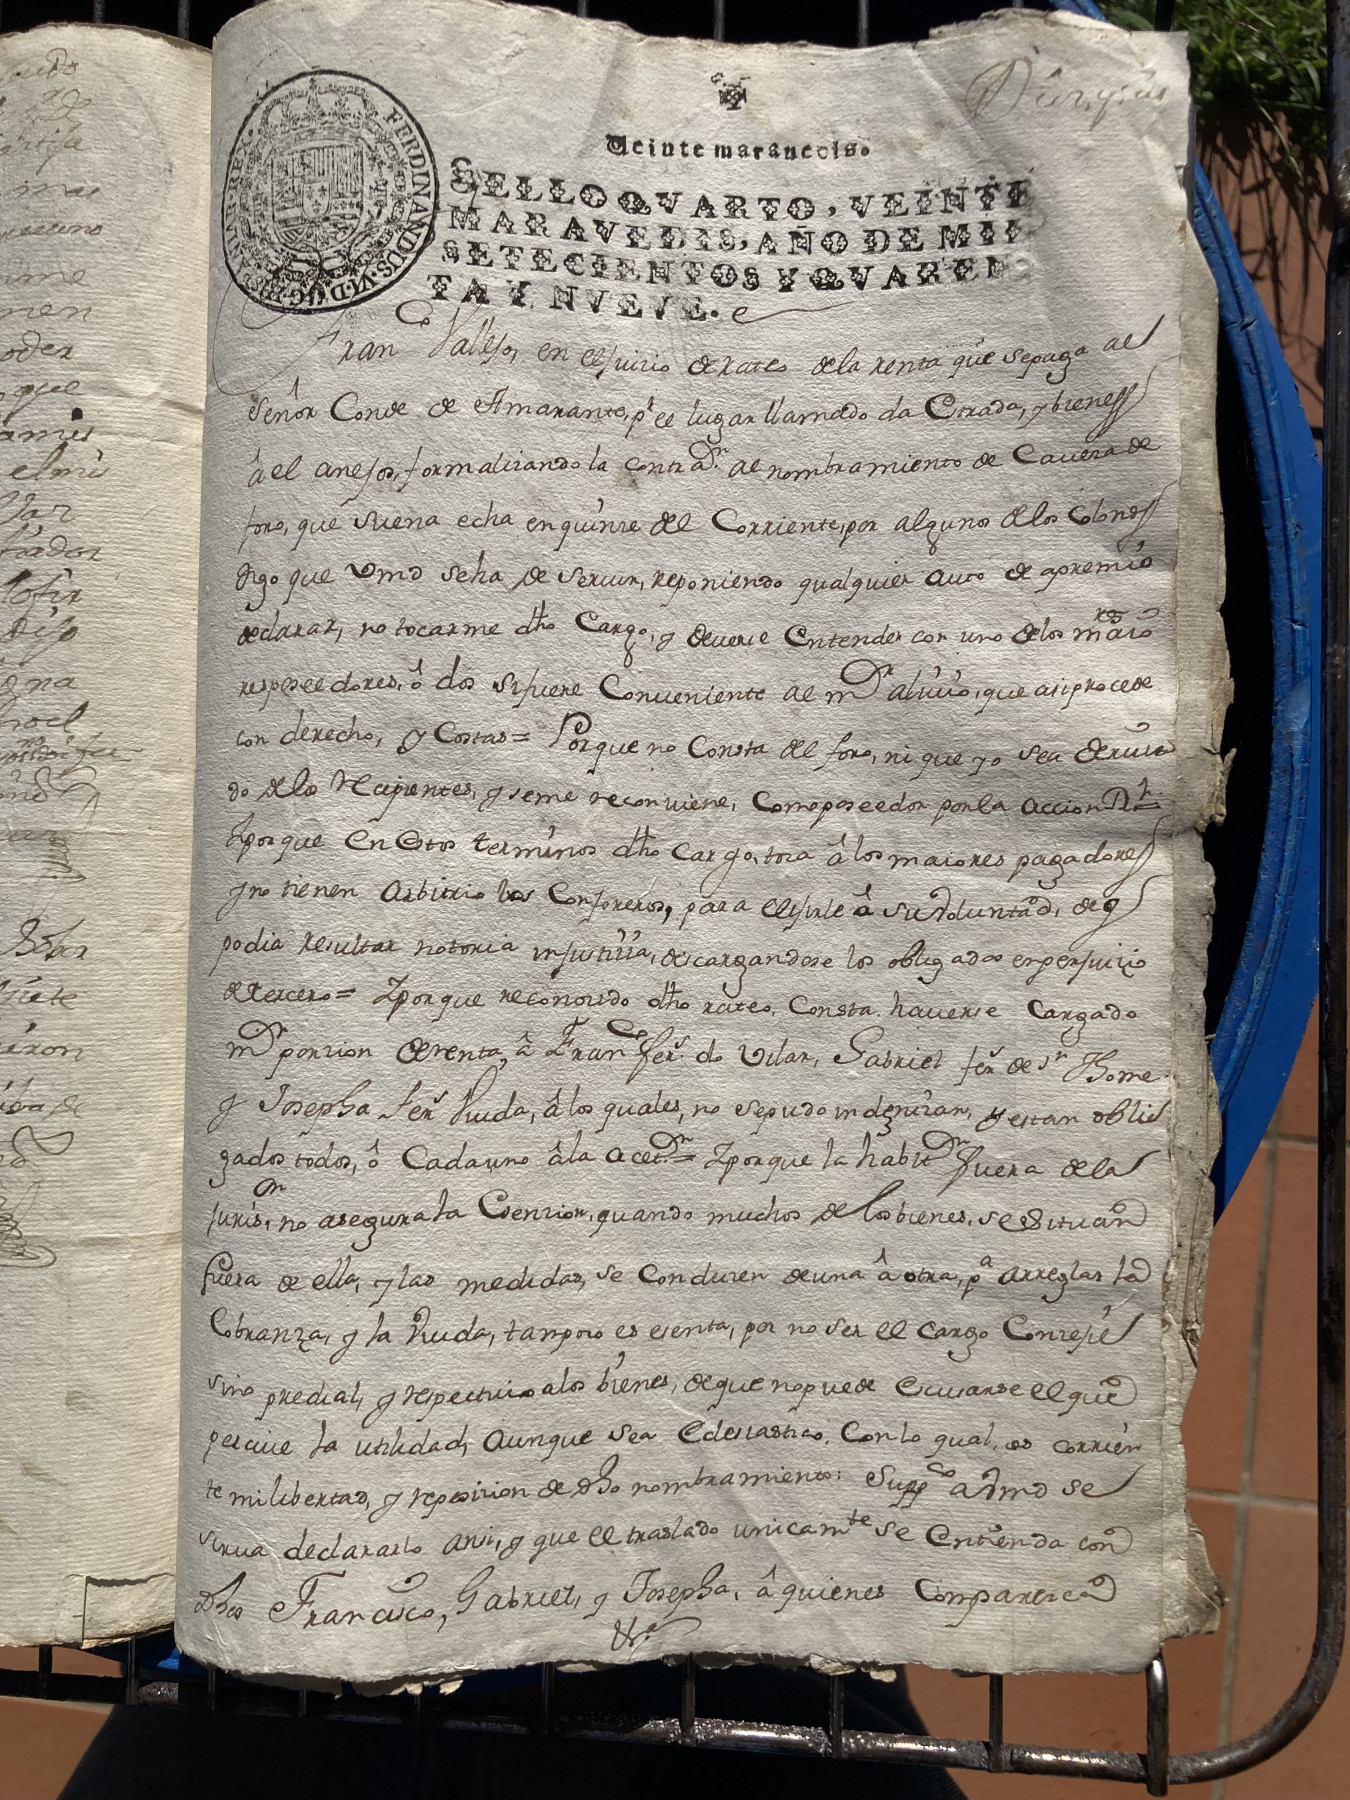 Veinte maravedis.
SELLO QVARTO, VEINTE
MARAVEDIS, AÑO DE MIL
SETECIENTOS Y QVAREN
TA Y NVEVE.
FERDINANDUS·VI·D·G·HISPANIAR·REX
Franco Vallejo, en el juicio de rateo de la renta que se paga al
Señor Conde de Amarante, pr el lugar llamado da Estrada, y bienes
â el anejos, formalizando la contradn al nombramiento de Cavera de
foro, que suena echa en quinze del Corriente, por algunos de los Colonos
digo que Vmd se ha de servir, reponiendo qualquier auto de apremio
declarar, no tocarme dho Cargo, y deverse Entender con uno de los maios
resposeedores, ô dos si fuere Conveniente al mr alivio, que asi procede
con derecho, y Costas= Porque no Consta del foro, ni que yo sea
do de los Recipientes, y se me reconviene, Como poseedor por la accion Rl=
Y porque en Estos terminos dho cargo, toca â los maiores pagadores
y no tienen arbitrio los Consoreros, para elejirle â su Voluntad, de q
podia resultar notoria injustizia, descargandose los obligados en perjuizio
de tercero= Y porque reconozido dho rateo, Consta haverse Cargado
mr porzion de renta, â Franco ferz do Vilar, Gabriel ferz de Sn Thome
y Josepha ferz Viuda, â los quales, no se pudo indenizar, y estan obli
gados todos, ô Cada uno âla acetn= Y porque la habitn fuera de la
jurisn, no asegura la Esenzion, quando muchos de los bienes, se Situan
fuera de ella, y las medidas, se Conduzen de una â otra, pa arreglar la
Cobranza, y la Viuda, tampoco es esenta, por no ser el cargo Conzejil
sino predial, y respectivo a los bienes, de que no puede Escusarse el que
percive la utilidad, aunque sea Eclesiastico. Con lo qual, es corrien
te mi libertad, y reposicion de dho nombramiento: Suppco a Vmd se
sirva declararlo ansi, y que el traslado unicamte se Entienda con
dhos Francisco, Gabriel, y Josepha, â quienes Comparezca
&ra